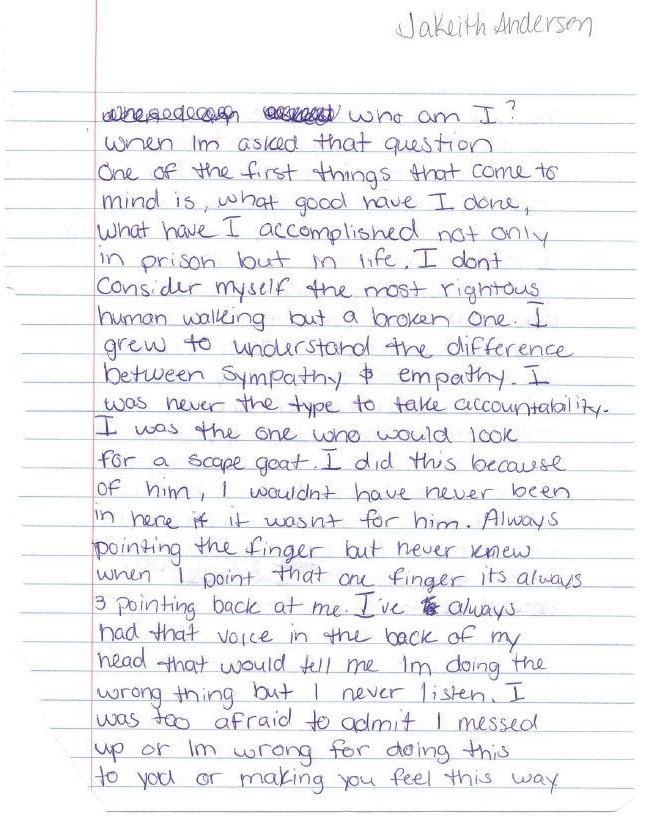 Jakeith Anderson
who am I?
when Im asked that question
One of the first things that come to
mind is, what good have I done,
what have I accomplished not only
in prison but in life. I dont
consider myself the most rightous
human walking but a broken one. I
grew to understand the difference
between sympathy & empathy. I
was never the type to take accountability.
I was the one who would look
for a scape goat. I did this because
of him, I wouldnt have never been
in here if it wasnt for him. Always
pointing the finger but never knew
when I point that one finger its always
3 pointing back at me. I've always
had that voice in the back of my
head that would tell me Im doing the
wrong thing but I never listen. I
was too afraid to admit I messed
up or Im wrong for doing this
to you or making you feel this way